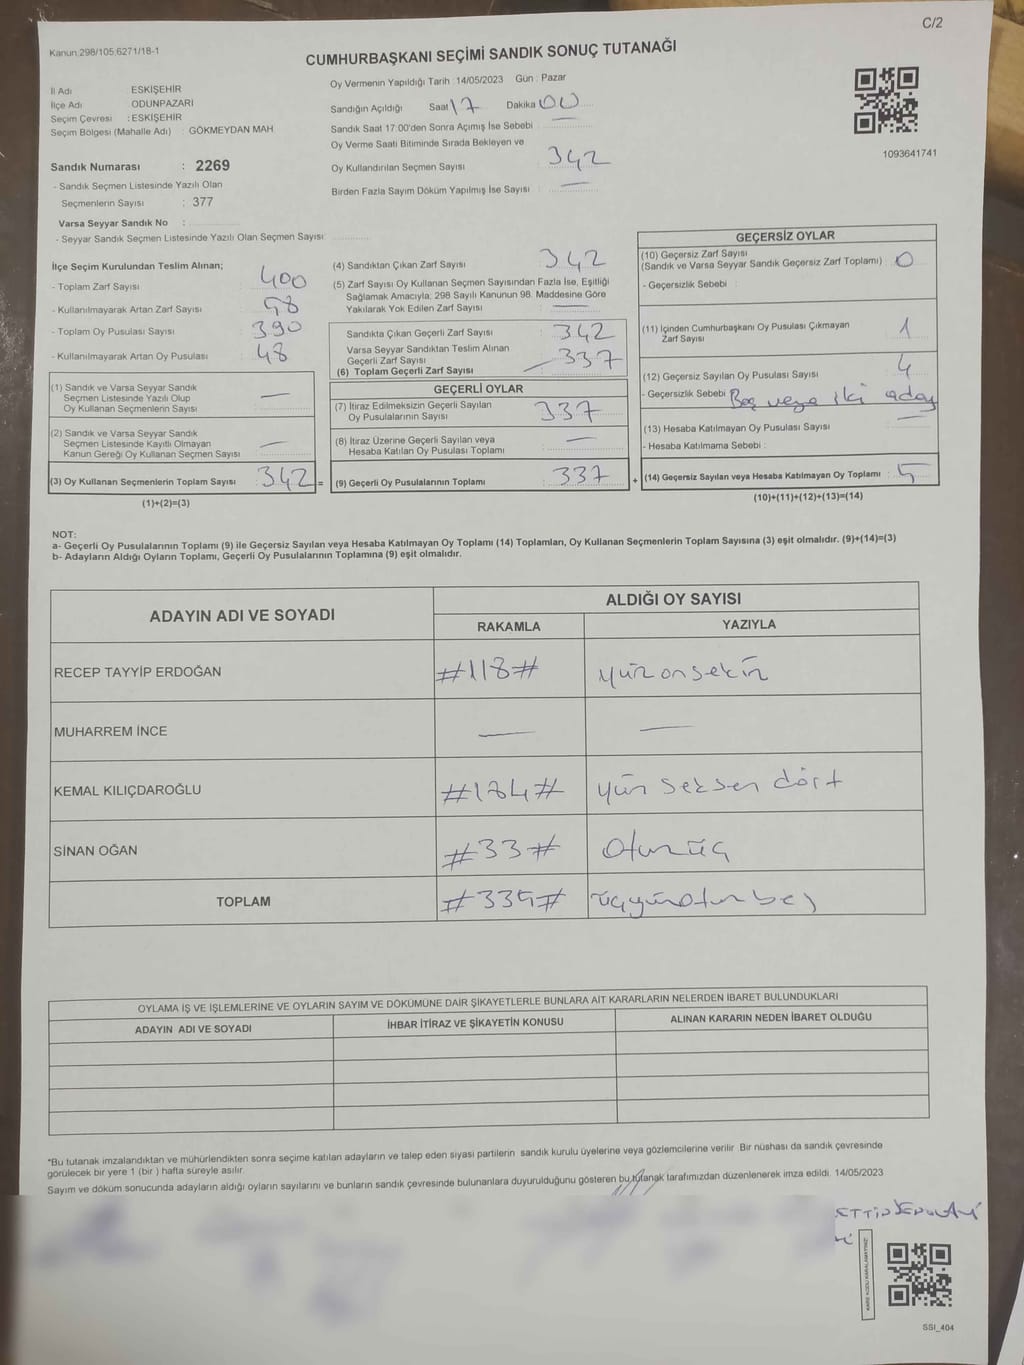 C/2
Kanun.298/105.6271/18-1
CUMHURBAŞKANI SEÇİMİ SANDIK SONUÇ TUTANAĞI
İl Adı ESKİŞEHİR
İlçe Adı ODUNPAZARI
Seçim Çevresi : ESKİŞEHİR
Seçim Bölgesi (Mahalle Adı) : GÖKMEYDAN MAH.
Sandık Numarası : 2269
- Sandık Seçmen Listesinde Yazılı Olan
Seçmenlerin Sayısı : 377
Varsa Seyyar Sandık No :
- Seyyar Sandık Seçmen Listesinde Yazılı Olan Seçmen Sayısı:
Oy Vermenin Yapıldığı Tarih :14/05/2023 Gün : Pazar
Sandığın Açıldığı Saat 17 Dakika 00
Sandık Saat 17:00'den Sonra Açımış İse Sebebi :
Oy Verme Saati Bitiminde Sırada Bekleyen ve
Oy Kullandırılan Seçmen Sayısı : 342
Birden Fazla Sayım Döküm Yapılmış İse Sayısı : —
1093641741
İlçe Seçim Kurulundan Teslim Alınan;
- Toplam Zarf Sayısı : 400
- Kullanılmayarak Artan Zarf Sayısı : 58
- Toplam Oy Pusulası Sayısı : 390
- Kullanılmayarak Artan Oy Pusulası : 48
(1) Sandık ve Varsa Seyyar Sandık
Seçmen Listesinde Yazılı Olup
Oy Kullanan Seçmenlerin Sayısı : —
(2) Sandık ve Varsa Seyyar Sandık
Seçmen Listesinde Kayıtlı Olmayan
Kanun Gereği Oy Kullanan Seçmen Sayısı : —
(3) Oy Kullanan Seçmenlerin Toplam Sayısı : 342 =
(1)+(2)=(3)
(4) Sandıktan Çıkan Zarf Sayısı : 342
(5) Zarf Sayısı Oy Kullanan Seçmen Sayısından Fazla İse, Eşitliği
Sağlamak Amacıyla; 298 Sayılı Kanunun 98. Maddesine Göre
Yakılarak Yok Edilen Zarf Sayısı : —
Sandıkta Çıkan Geçerli Zarf Sayısı : 342
Varsa Seyyar Sandıktan Teslim Alınan
Geçerli Zarf Sayısı : —
(6) Toplam Geçerli Zarf Sayısı : 337
GEÇERLİ OYLAR
(7) İtiraz Edilmeksizin Geçerli Sayılan
Oy Pusulalarının Sayısı : 337
(8) İtiraz Üzerine Geçerli Sayılan veya
Hesaba Katılan Oy Pusulası Toplamı : —
(9) Geçerli Oy Pusulalarının Toplamı : 337 +
GEÇERSİZ OYLAR
(10) Geçersiz Zarf Sayısı
(Sandık ve Varsa Seyyar Sandık Geçersiz Zarf Toplamı) : 0
- Geçersizlik Sebebi :
(11) İçinden Cumhurbaşkanı Oy Pusulası Çıkmayan
Zarf Sayısı : 1
(12) Geçersiz Sayılan Oy Pusulası Sayısı : 4
- Geçersizlik Sebebi : Boş veya iki aday
(13) Hesaba Katılmayan Oy Pusulası Sayısı : —
- Hesaba Katılmama Sebebi :
(14) Geçersiz Sayılan veya Hesaba Katılmayan Oy Toplamı : 5
(10)+(11)+(12)+(13)=(14)
NOT:
a- Geçerli Oy Pusulalarının Toplamı (9) ile Geçersiz Sayılan veya Hesaba Katılmayan Oy Toplamı (14) Toplamları, Oy Kullanan Seçmenlerin Toplam Sayısına (3) eşit olmalıdır. (9)+(14)=(3)
b- Adayların Aldığı Oyların Toplamı, Geçerli Oy Pusulalarının Toplamına (9) eşit olmalıdır.
ADAYIN ADI VE SOYADI
ALDIĞI OY SAYISI
RAKAMLA YAZIYLA
RECEP TAYYİP ERDOĞAN #118# yüz on sekiz
MUHARREM İNCE — —
KEMAL KILIÇDAROĞLU #184# yüz seksen dört
SİNAN OĞAN #33# Otuz üç
TOPLAM #335# üçyüzotuzbeş
OYLAMA İŞ VE İŞLEMLERİNE VE OYLARIN SAYIM VE DÖKÜMÜNE DAİR ŞİKAYETLERLE BUNLARA AİT KARARLARIN NELERDEN İBARET BULUNDUKLARI
ADAYIN ADI VE SOYADI İHBAR İTİRAZ VE ŞİKAYETİN KONUSU ALINAN KARARIN NEDEN İBARET OLDUĞU
*Bu tutanak imzalandıktan ve mühürlendikten sonra seçime katılan adayların ve talep eden siyasi partilerin sandık kurulu üyelerine veya gözlemcilerine verilir. Bir nüshası da sandık çevresinde
görülecek bir yere 1 (bir) hafta süreyle asılır.
Sayım ve döküm sonucunda adayların aldığı oyların sayılarını ve bunların sandık çevresinde bulunanlara duyurulduğunu gösteren bu tutanak tarafımızdan düzenlenerek imza edildi. 14/05/2023
SSI_404